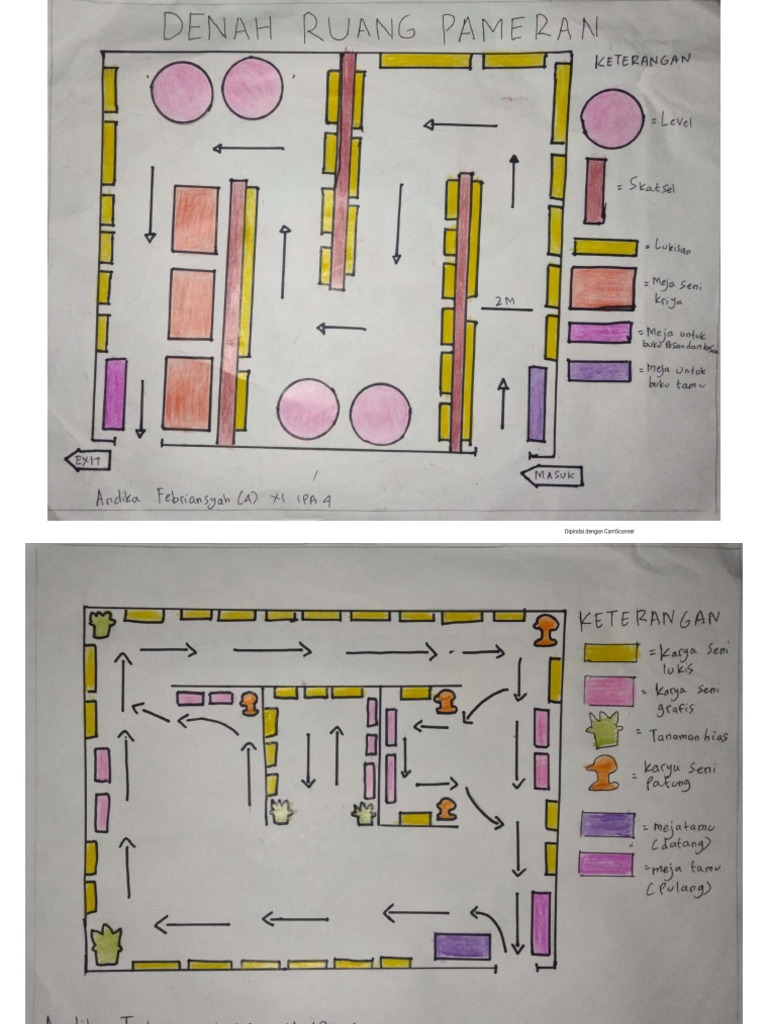 DENAH RUANG PAMERAN
KETERANGAN
= Level
= Skatsel
= Lukisan
= Meja Seni
kriya
= Meja untuk
buku Pesan dan kesan
= Meja untuk
buku tamu
2 M
EXIT
MASUK
Andika Febriansyah (4) XI IPA 4
Dipindai dengan CamScanner
KETERANGAN
= Karya Seni
lukis
= Karya seni
grafis
= Tanaman hias
= Karya seni
patung
= meja tamu
(datang)
= meja tamu
(Pulang)